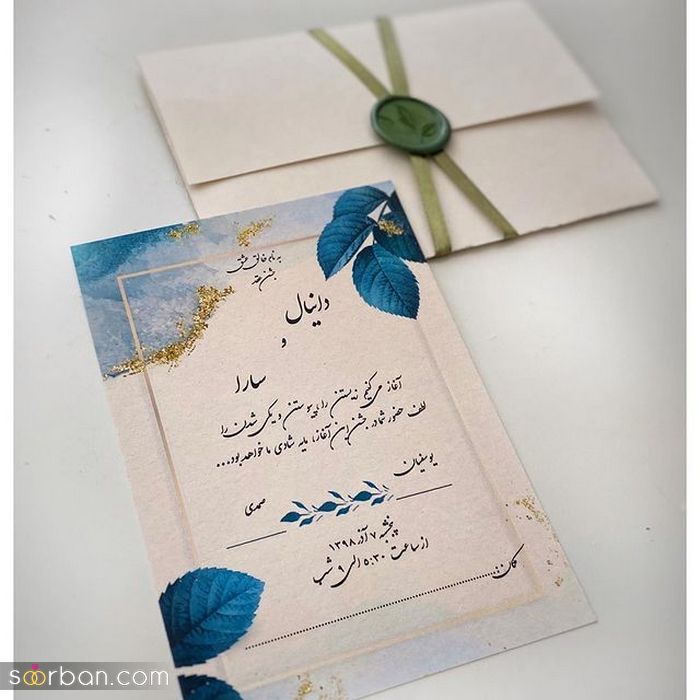 به نام خالق عشق
جشن عقد
دانیال
و
سارا
آغاز می کنیم زیستن را، پیوستن و یکی شدن را
لطف حضور شما در جشن این آغاز، مایه شادی ما خواهد بود...
یوسفیان
صمدی
پنجشنبه ۷ آذر ۱۳۹۸
از ساعت ۵:۳۰ الی ۹ شب
مکان:
soorban.com